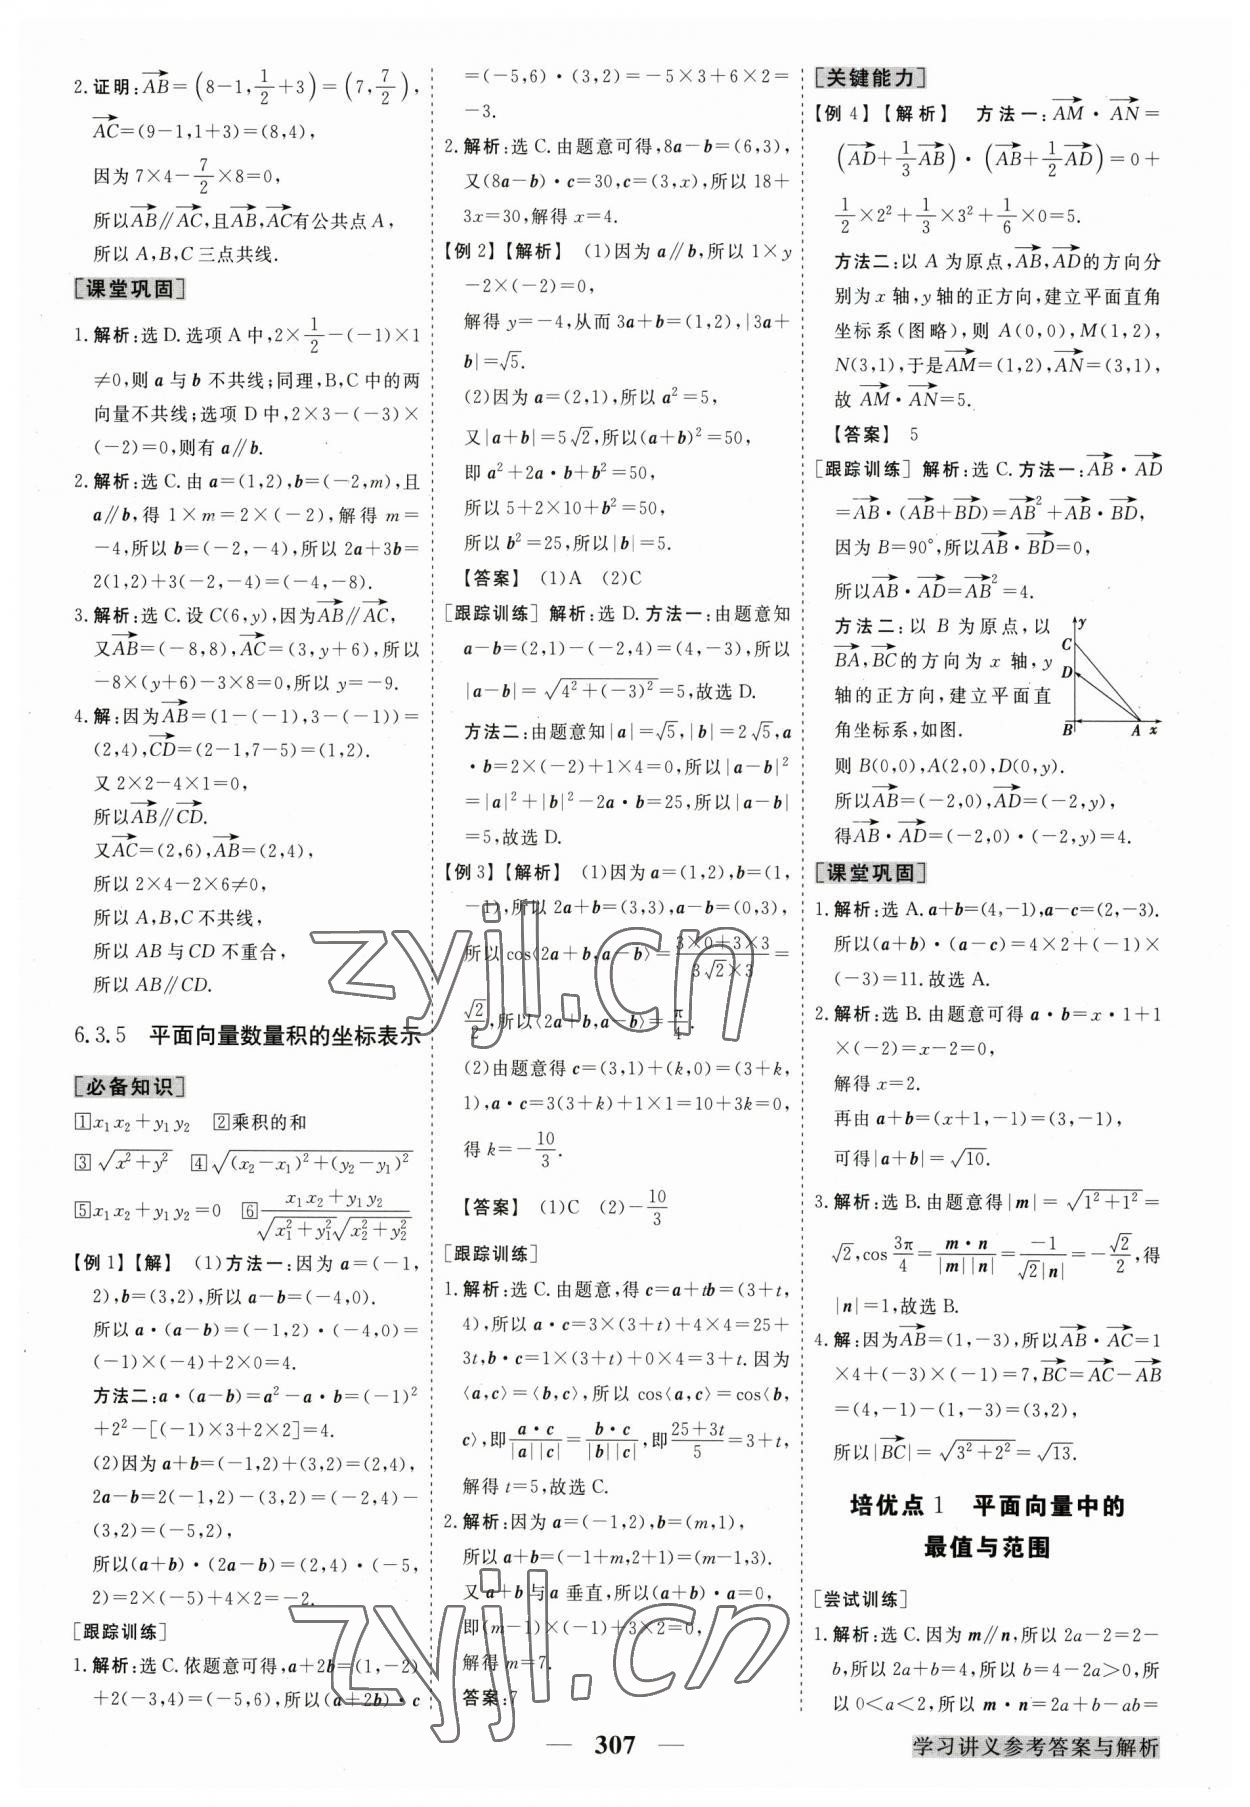 2.证明:AB=(8-1,1/2+3)=(7,7/2),
AC=(9-1,1+3)=(8,4),
因为7×4-7/2×8=0,
所以AB∥AC,且AB,AC有公共点A,
所以A,B,C三点共线.
[课堂巩固]
1.解析:选D.选项A中,2×1/2-(-1)×1
≠0,则a与b不共线;同理,B,C中的两
向量不共线;选项D中,2×3-(-3)×
(-2)=0,则有a∥b.
2.解析:选C.由a=(1,2),b=(-2,m),且
a∥b,得1×m=2×(-2),解得m=
-4,所以b=(-2,-4),所以2a+3b=
2(1,2)+3(-2,-4)=(-4,-8).
3.解析:选C.设C(6,y),因为AB∥AC,
又AB=(-8,8),AC=(3,y+6),所以
-8×(y+6)-3×8=0,所以y=-9.
4.解:因为AB=(1-(-1),3-(-1))=
(2,4),CD=(2-1,7-5)=(1,2).
又2×2-4×1=0,
所以AB∥CD.
又AC=(2,6),AB=(2,4),
所以2×4-2×6≠0,
所以A,B,C不共线,
所以AB与CD不重合,
所以AB∥CD.
6.3.5 平面向量数量积的坐标表示
[必备知识]
①x₁x₂+y₁y₂ ②乘积的和
③√(x²+y²) ④√((x₂-x₁)²+(y₂-y₁)²)
⑤x₁x₂+y₁y₂=0 ⑥(x₁x₂+y₁y₂)/(√(x₁²+y₁²)√(x₂²+y₂²))
【例1】【解】 (1)方法一:因为a=(-1,
2),b=(3,2),所以a-b=(-4,0).
所以a·(a-b)=(-1,2)·(-4,0)=
(-1)×(-4)+2×0=4.
方法二:a·(a-b)=a²-a·b=(-1)²
+2²-[(-1)×3+2×2]=4.
(2)因为a+b=(-1,2)+(3,2)=(2,4),
2a-b=2(-1,2)-(3,2)=(-2,4)-
(3,2)=(-5,2),
所以(a+b)·(2a-b)=(2,4)·(-5,
2)=2×(-5)+4×2=-2.
[跟踪训练]
1.解析:选C.依题意可得,a+2b=(1,-2)
+2(-3,4)=(-5,6),所以(a+2b)·c
=(-5,6)·(3,2)=-5×3+6×2=
-3.
2.解析:选C.由题意可得,8a-b=(6,3),
又(8a-b)·c=30,c=(3,x),所以18+
3x=30,解得x=4.
【例2】【解析】 (1)因为a∥b,所以1×y
-2×(-2)=0,
解得y=-4,从而3a+b=(1,2),|3a+
b|=√5.
(2)因为a=(2,1),所以a²=5,
又|a+b|=5√2,所以(a+b)²=50,
即a²+2a·b+b²=50,
所以5+2×10+b²=50,
所以b²=25,所以|b|=5.
【答案】 (1)A (2)C
[跟踪训练] 解析:选D.方法一:由题意知
a-b=(2,1)-(-2,4)=(4,-3),所以
|a-b|=√(4²+(-3)²)=5,故选D.
方法二:由题意知|a|=√5,|b|=2√5,a
·b=2×(-2)+1×4=0,所以|a-b|²
=|a|²+|b|²-2a·b=25,所以|a-b|
=5,故选D.
【例3】【解析】 (1)因为a=(1,2),b=(1,
-1),所以2a+b=(3,3),a-b=(0,3),
所以cos⟨2a+b,a-b⟩=(3×0+3×3)/(3√2×3)=
√2/2,所以⟨2a+b,a-b⟩=π/4.
(2)由题意得c=(3,1)+(k,0)=(3+k,
1),a·c=3(3+k)+1×1=10+3k=0,
得k=-10/3.
【答案】 (1)C (2)-10/3
[跟踪训练]
1.解析:选C.由题意,得c=a+tb=(3+t,
4),所以a·c=3×(3+t)+4×4=25+
3t,b·c=1×(3+t)+0×4=3+t.因为
⟨a,c⟩=⟨b,c⟩,所以cos⟨a,c⟩=cos⟨b,
c⟩,即a·c/|a||c|=b·c/|b||c|,即(25+3t)/5=3+t,
解得t=5,故选C.
2.解析:因为a=(-1,2),b=(m,1),
所以a+b=(-1+m,2+1)=(m-1,3).
又a+b与a垂直,所以(a+b)·a=0,
即(m-1)×(-1)+3×2=0,
解得m=7.
答案:7
[关键能力]
【例4】【解析】 方法一:AM·AN=
(AD+1/3AB)·(AB+1/2AD)=0+
1/2×2²+1/3×3²+1/6×0=5.
方法二:以A为原点,AB,AD的方向分
别为x轴,y轴的正方向,建立平面直角
坐标系(图略),则A(0,0),M(1,2),
N(3,1),于是AM=(1,2),AN=(3,1),
故AM·AN=5.
【答案】 5
[跟踪训练] 解析:选C.方法一:AB·AD
=AB·(AB+BD)=AB²+AB·BD,
因为B=90°,所以AB·BD=0,
所以AB·AD=AB²=4.
方法二:以B为原点,以
BA,BC的方向为x轴,y
轴的正方向,建立平面直
角坐标系,如图.
y
C
D
B A x
则B(0,0),A(2,0),D(0,y).
所以AB=(-2,0),AD=(-2,y),
得AB·AD=(-2,0)·(-2,y)=4.
[课堂巩固]
1.解析:选A.a+b=(4,-1),a-c=(2,-3).
所以(a+b)·(a-c)=4×2+(-1)×
(-3)=11.故选A.
2.解析:选B.由题意可得a·b=x·1+1
×(-2)=x-2=0,
解得x=2.
再由a+b=(x+1,-1)=(3,-1),
可得|a+b|=√10.
3.解析:选B.由题意得|m|=√(1²+1²)=
√2,cos3π/4=m·n/|m||n|=-1/√2|n|=-√2/2,得
|n|=1,故选B.
4.解:因为AB=(1,-3),所以AB·AC=1
×4+(-3)×(-1)=7,BC=AC-AB
=(4,-1)-(1,-3)=(3,2),
所以|BC|=√(3²+2²)=√13.
培优点1 平面向量中的
最值与范围
[尝试训练]
1.解析:选C.因为m∥n,所以2a-2=2-
b,所以2a+b=4,所以b=4-2a>0,所
以0<a<2,所以m·n=2a+b-ab=
zyjl.cn
zyjl.cn
— 307 —
学习讲义参考答案与解析